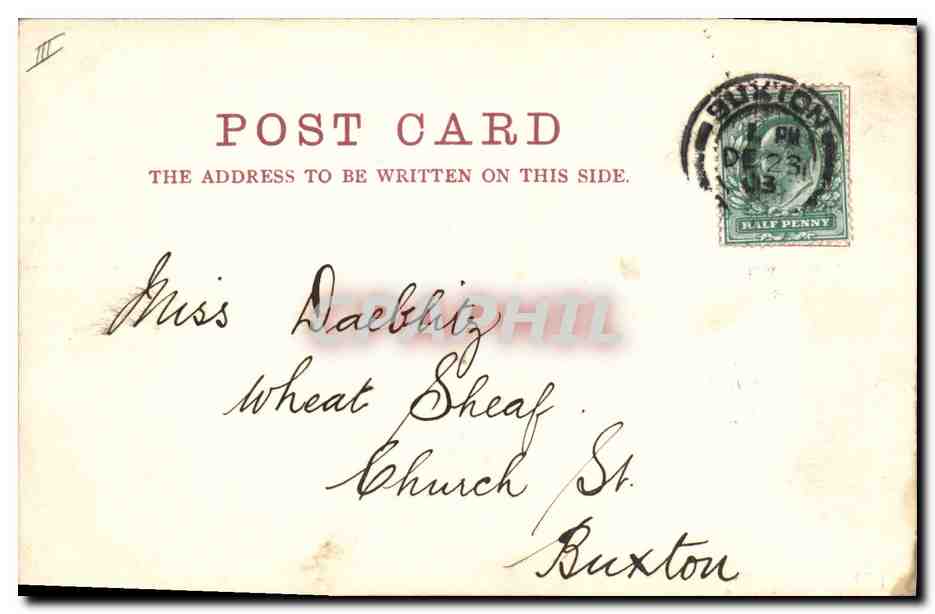 III
POST CARD
THE ADDRESS TO BE WRITTEN ON THIS SIDE.
BUXTON
PM
DE 23
03
HALF PENNY
Miss Daebblitz
CPAPHIL
Wheat Sheaf.
Church St.
Buxton